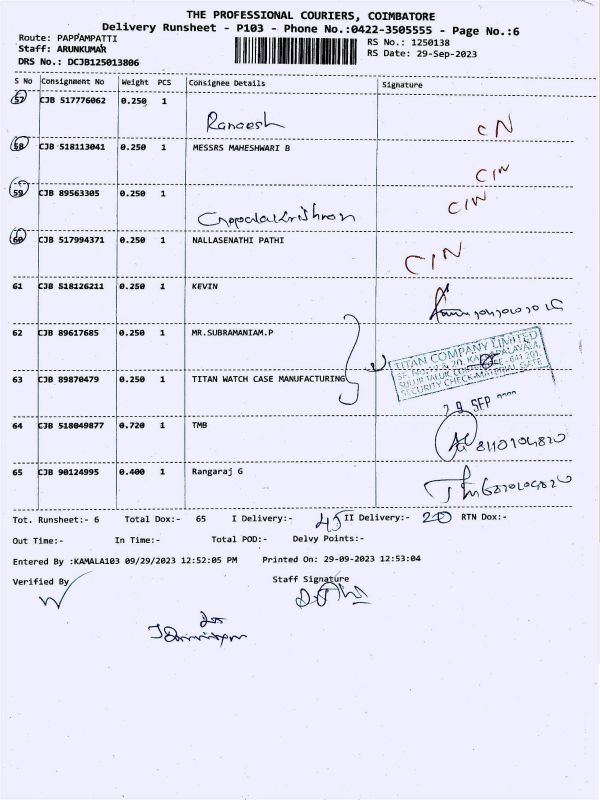 THE PROFESSIONAL COURIERS, COIMBATORE
Delivery Runsheet - P103 - Phone No.:0422-3505555 - Page No.:6
Route: PAPPAMPATTI
RS No.: 1250138
Staff: ARUNKUMAR
RS Date: 29-Sep-2023
DRS No.: DCJB125013806
S No Consignment No Weight PCS Consignee Details Signature
57 CJB 517776062 0.250 1
Rangesh CN
58 CJB 518113041 0.250 1 MESSRS MAHESHWARI B
CIN
59 CJB 89563305 0.250 1 CIN
Gopalakrishnan
60 CJB 517994371 0.250 1 NALLASENATHI PATHI
CIN
61 CJB 518126211 0.250 1 KEVIN
62 CJB 89617685 0.250 1 MR.SUBRAMANIAM.P
TITAN COMPANY LIMITED
63 CJB 89870479 0.250 1 TITAN WATCH CASE MANUFACTURING
SECURITY CHECK-MATERIAL GATE
29 SEP
64 CJB 518049877 0.720 1 TMB
8110104820
65 CJB 90124995 0.400 1 Rangaraj G
Tot. Runsheet:- 6 Total Dox:- 65 I Delivery:- 45 II Delivery:- 20 RTN Dox:-
Out Time:- In Time:- Total POD:- Delvy Points:-
Entered By :KAMALA103 09/29/2023 12:52:05 PM Printed On: 29-09-2023 12:53:04
Verified By Staff Signature